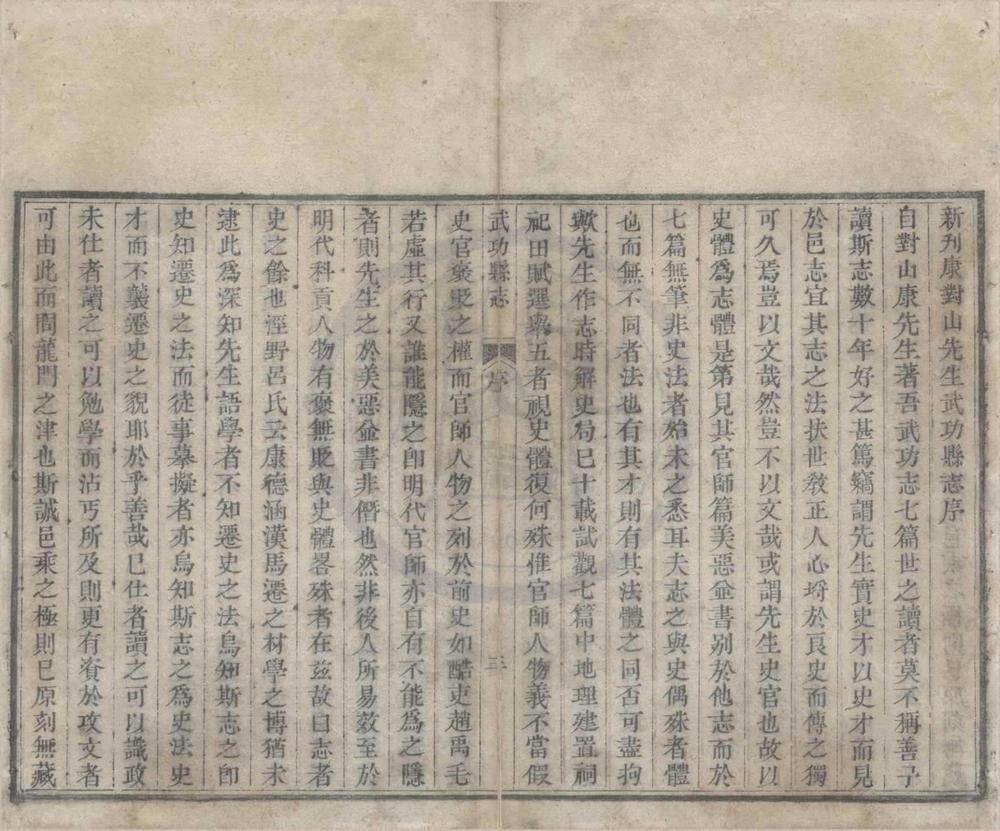 新刊康對山先生武功縣志序
自對山康先生著吾武功志七篇世之讀者莫不稱善予
讀斯志數十年好之甚篤竊謂先生實史才以史才而見
於邑志宜其志之法扶世敎正人心埒於良史而傳之獨
可久焉豈以文哉然豈不以文哉或謂先生史官也故以
史體爲志體是第見其官師篇美惡並書别於他志而於
七篇無筆非史法者始未之悉耳夫志之與史偶殊者體
也而無不同者法也有其才則有其法體之同否可盡拘
歟先生作志時解史局巳十載試觀七篇中地理建置祠
祀田賦選舉五者視史體復何殊惟官師人物義不當假
武功縣志 序 三
史官褒貶之權而官師人物之列於前史如酷吏趙禹毛
若虛其行又誰能隱之卽明代官師亦自有不能爲之隱
者則先生之於美惡並書非僭也然非後人所易效至於
明代科貢人物有褒無貶與史體畧殊者在茲故曰志者
史之餘也涇野呂氏云康德涵漢馬遷之材學之博猶未
逮此爲深知先生語學者不知遷史之法烏知斯志之卽
史知遷史之法而徒事摹擬者亦烏知斯志之爲史法史
才而不襲遷史之貌耶於乎善哉巳仕者讀之可以識政
未仕者讀之可以勉學而沾丐所及則更有資於攻文者
可由此而問龍門之津也斯誠邑乘之極則巳原刻無藏